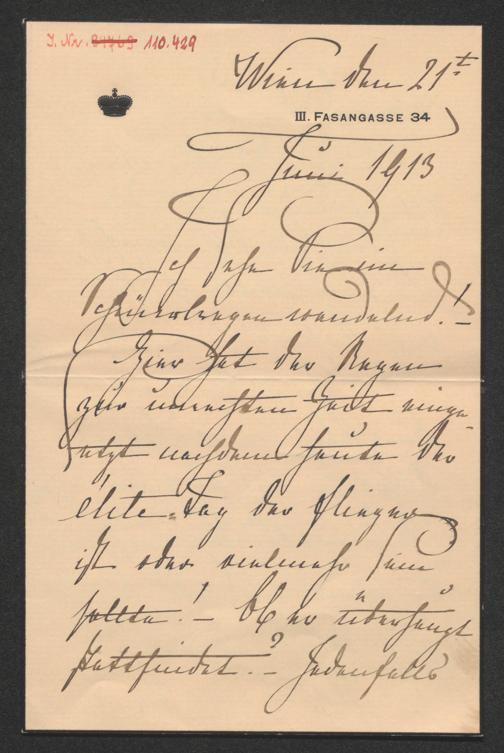 J. Nr. 110.429
Wien den 21t
III. FASANGASSE 34
Juni 1913
Ich sehe Sie im
wandelnd!–
Hier hat der Regen
zur unrechten Zeit einge-
setzt nachdem heute der
élite-Tag der Flieger
ist oder vielmehr sein
sollte!– Ob er überhaupt
stattfindet?– Jedenfalls